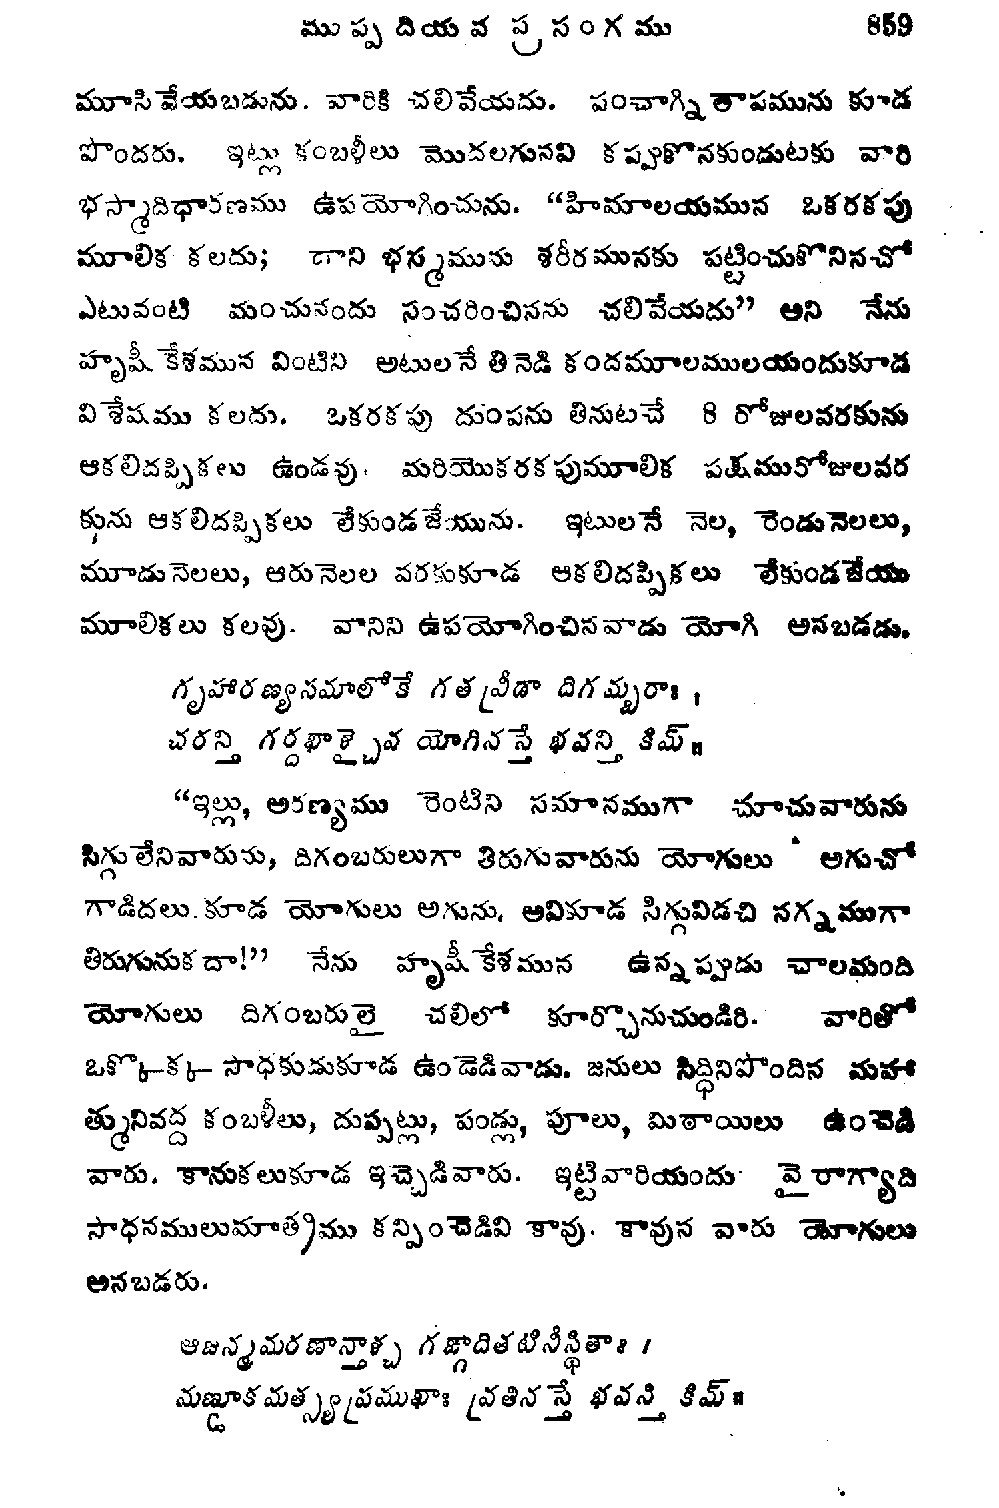 ముప్పదియవ ప్రసంగము 859
మూసివేయబడును. వారికి చలివేయదు. పంచాగ్ని తాపమును కూడ
పొందరు. ఇట్లు కంబళీలు మొదలగునవి కప్పుకొనకుండుటకు వారి
భస్మాదిధారణము ఉపయోగించును. “హిమాలయమున ఒకరకపు
మూలిక కలదు; దాని భస్మమును శరీరమునకు పట్టించుకొనినచో
ఎటువంటి మంచునందు సంచరించినను చలివేయదు” అని నేను
హృషీకేశమున వింటిని అటులనే తినెడి కందమూలములయందుకూడ
విశేషము కలదు. ఒకరకపు దుంపను తినుటచే 8 రోజులవరకును
ఆకలిదప్పికలు ఉండవు. మరియొకరకపుమూలిక పక్షమురోజులవర
కును ఆకలిదప్పికలు లేకుండజేయును. ఇటులనే నెల, రెండునెలలు,
మూడునెలలు, ఆరునెలల వరకుకూడ ఆకలిదప్పికలు లేకుండజేయు
మూలికలు కలవు. వానిని ఉపయోగించినవాడు యోగి అనబడడు.
గృహారణ్యసమాలోకే గతవ్రీడా దిగమ్బరాః ।
చరన్తి గర్దభాశ్చైవ యోగినస్తే భవన్తి కిమ్॥
“ఇల్లు, అరణ్యము రెంటిని సమానముగా చూచువారును
సిగ్గులేనివారును, దిగంబరులుగా తిరుగువారును యోగులు అగుచో
గాడిదలు కూడ యోగులు అగును. అవికూడ సిగ్గువిడచి నగ్నముగా
తిరుగునుకదా!” నేను హృషీకేశమున ఉన్నప్పుడు చాలమంది
యోగులు దిగంబరులై చలిలో కూర్చొనుచుండిరి. వారితో
ఒక్కొక్క సాధకుడుకూడ ఉండెడివాడు. జనులు సిద్ధినిపొందిన మహా
త్మునివద్ద కంబళీలు, దుప్పట్లు, పండ్లు, పూలు, మిఠాయిలు ఉంచెడి
వారు. కానుకలుకూడ ఇచ్చెడివారు. ఇట్టివారియందు వైరాగ్యాది
సాధనములుమాత్రము కన్పించెడివి కావు. కావున వారు యోగులు
అనబడరు.
ఆజన్మమరణాన్తాశ్చ గఙ్గాదితటినీస్థితాః ।
మణ్డూకమత్స్యప్రముఖాః వ్రతినస్తే భవన్తి కిమ్॥